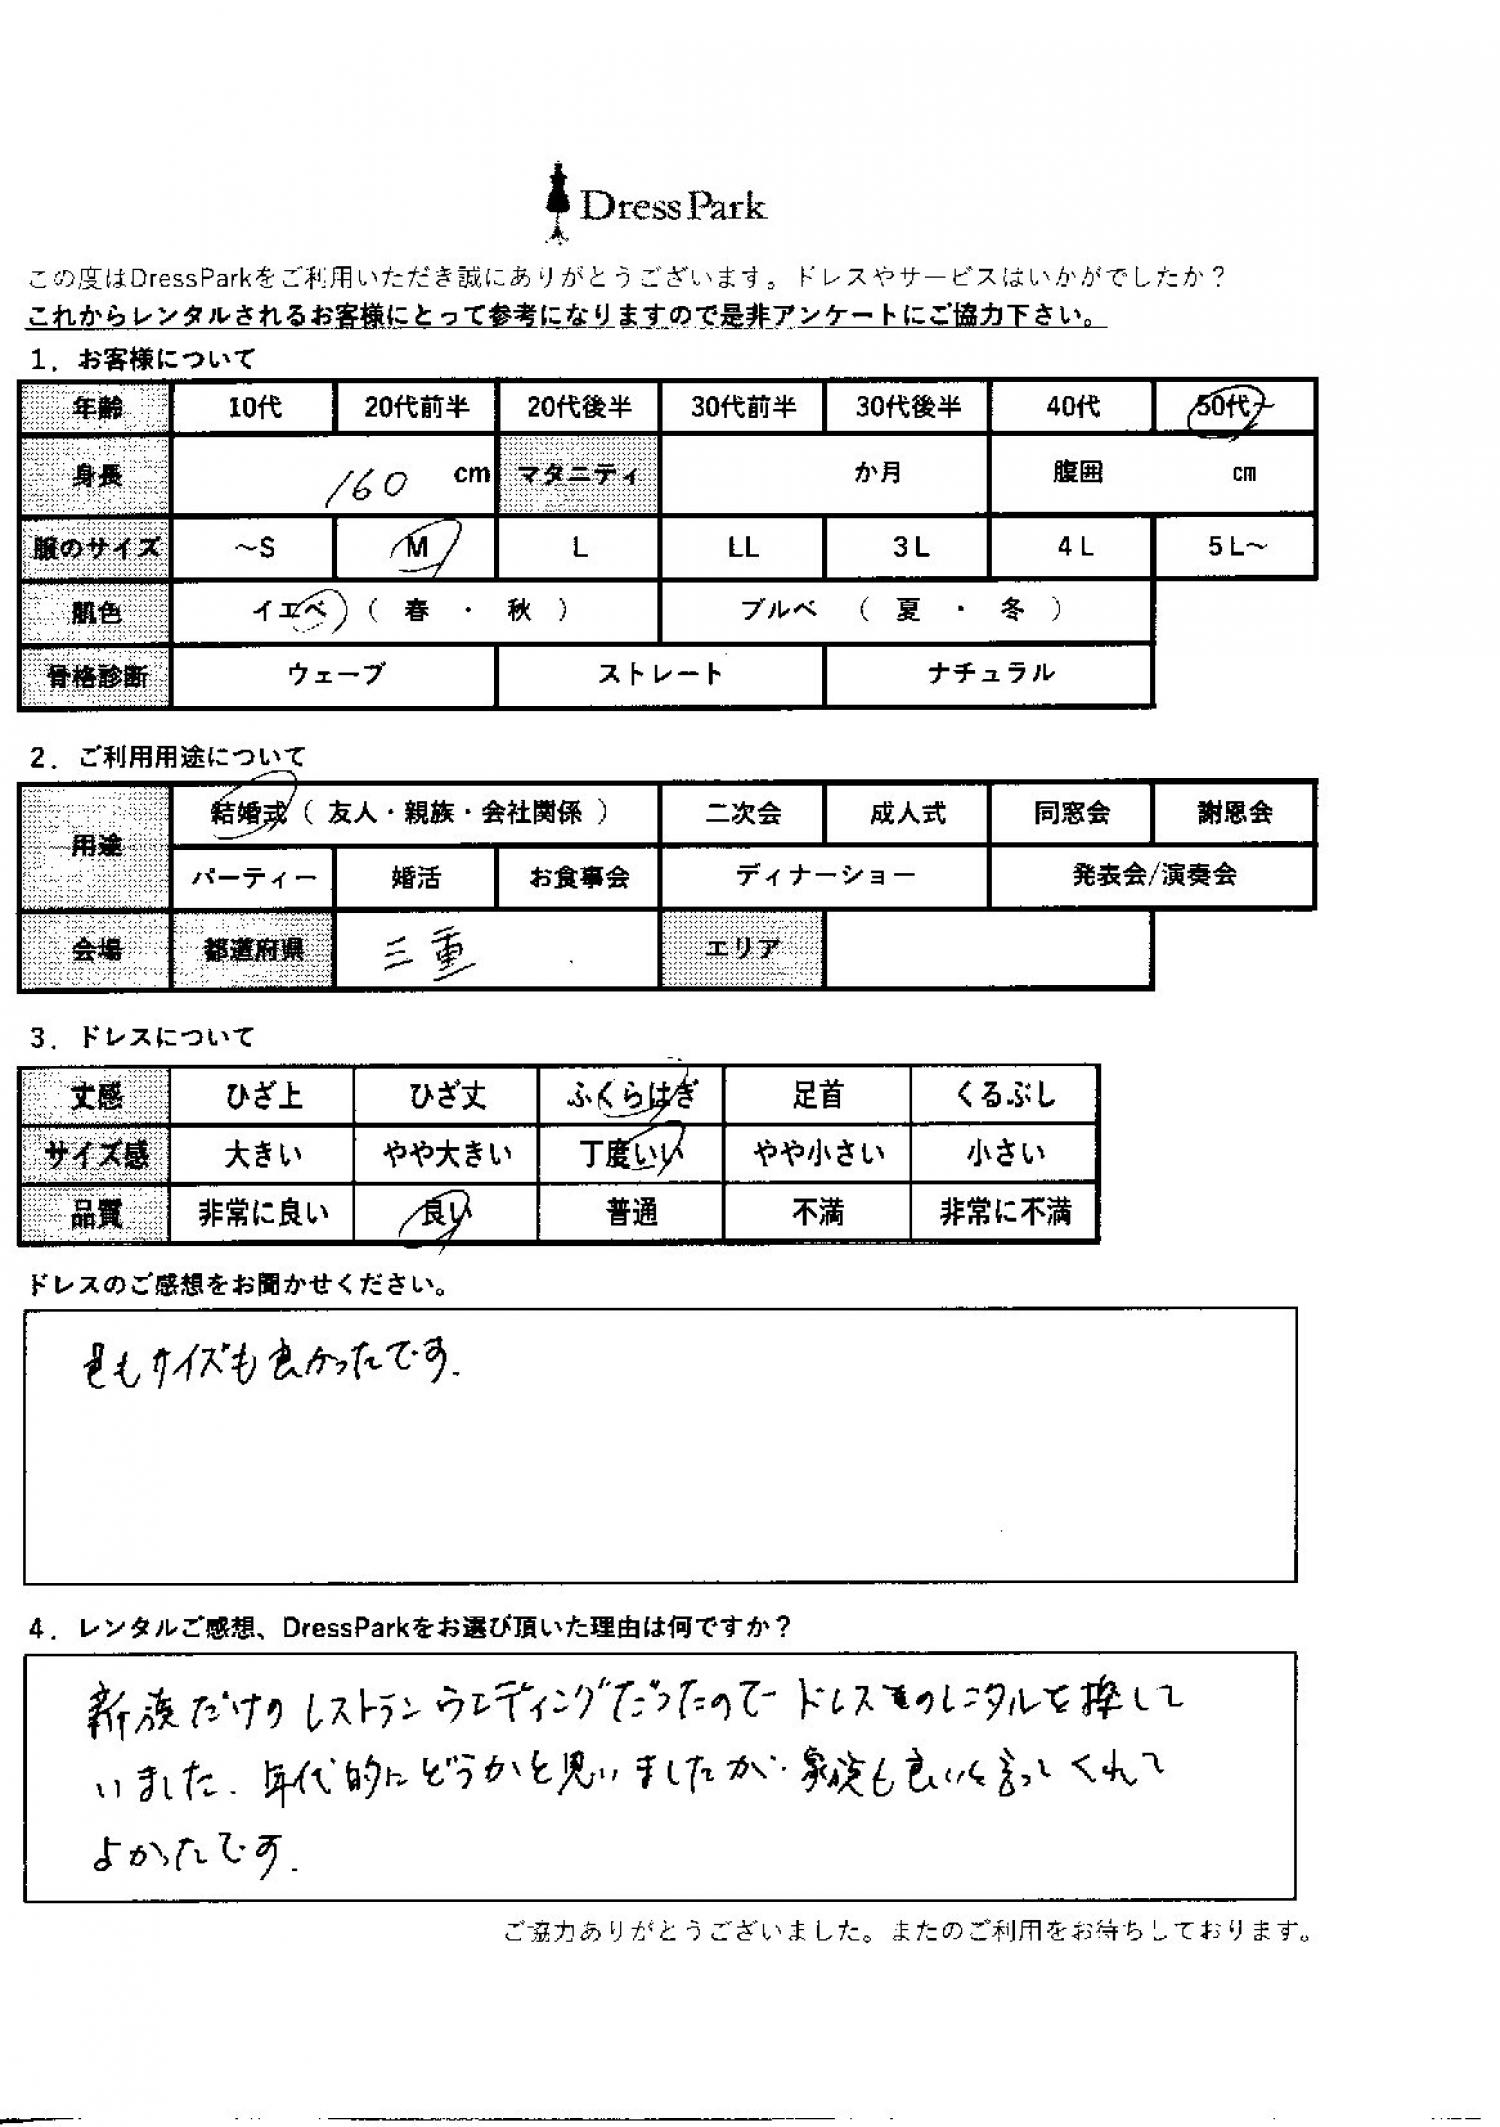 DressPark
この度はDressParkをご利用いただき誠にありがとうございます。ドレスやサービスはいかがでしたか？
これからレンタルされるお客様にとって参考になりますので是非アンケートにご協力下さい。
1．お客様について
年齢 10代 20代前半 20代後半 30代前半 30代後半 40代 50代～
身長 160 cm マタニティ か月 腹囲 cm
服のサイズ ～S M L LL 3L 4L 5L～
肌色 イエベ（ 春 ・ 秋 ） ブルベ （ 夏 ・ 冬 ）
骨格診断 ウェーブ ストレート ナチュラル
2．ご利用用途について
用途 結婚式（ 友人・親族・会社関係 ） 二次会 成人式 同窓会 謝恩会
パーティー 婚活 お食事会 ディナーショー 発表会/演奏会
会場 都道府県 三重 エリア
3．ドレスについて
丈感 ひざ上 ひざ丈 ふくらはぎ 足首 くるぶし
サイズ感 大きい やや大きい 丁度いい やや小さい 小さい
品質 非常に良い 良い 普通 不満 非常に不満
ドレスのご感想をお聞かせください。
色もサイズも良かったです.
4．レンタルご感想、DressParkをお選び頂いた理由は何ですか？
新族だけのレストランウエディングだったのでドレスのレンタルを探して
いました. 年代的にどうかと思いましたが・家族も良いと言ってくれて
よかったです.
ご協力ありがとうございました。またのご利用をお待ちしております。